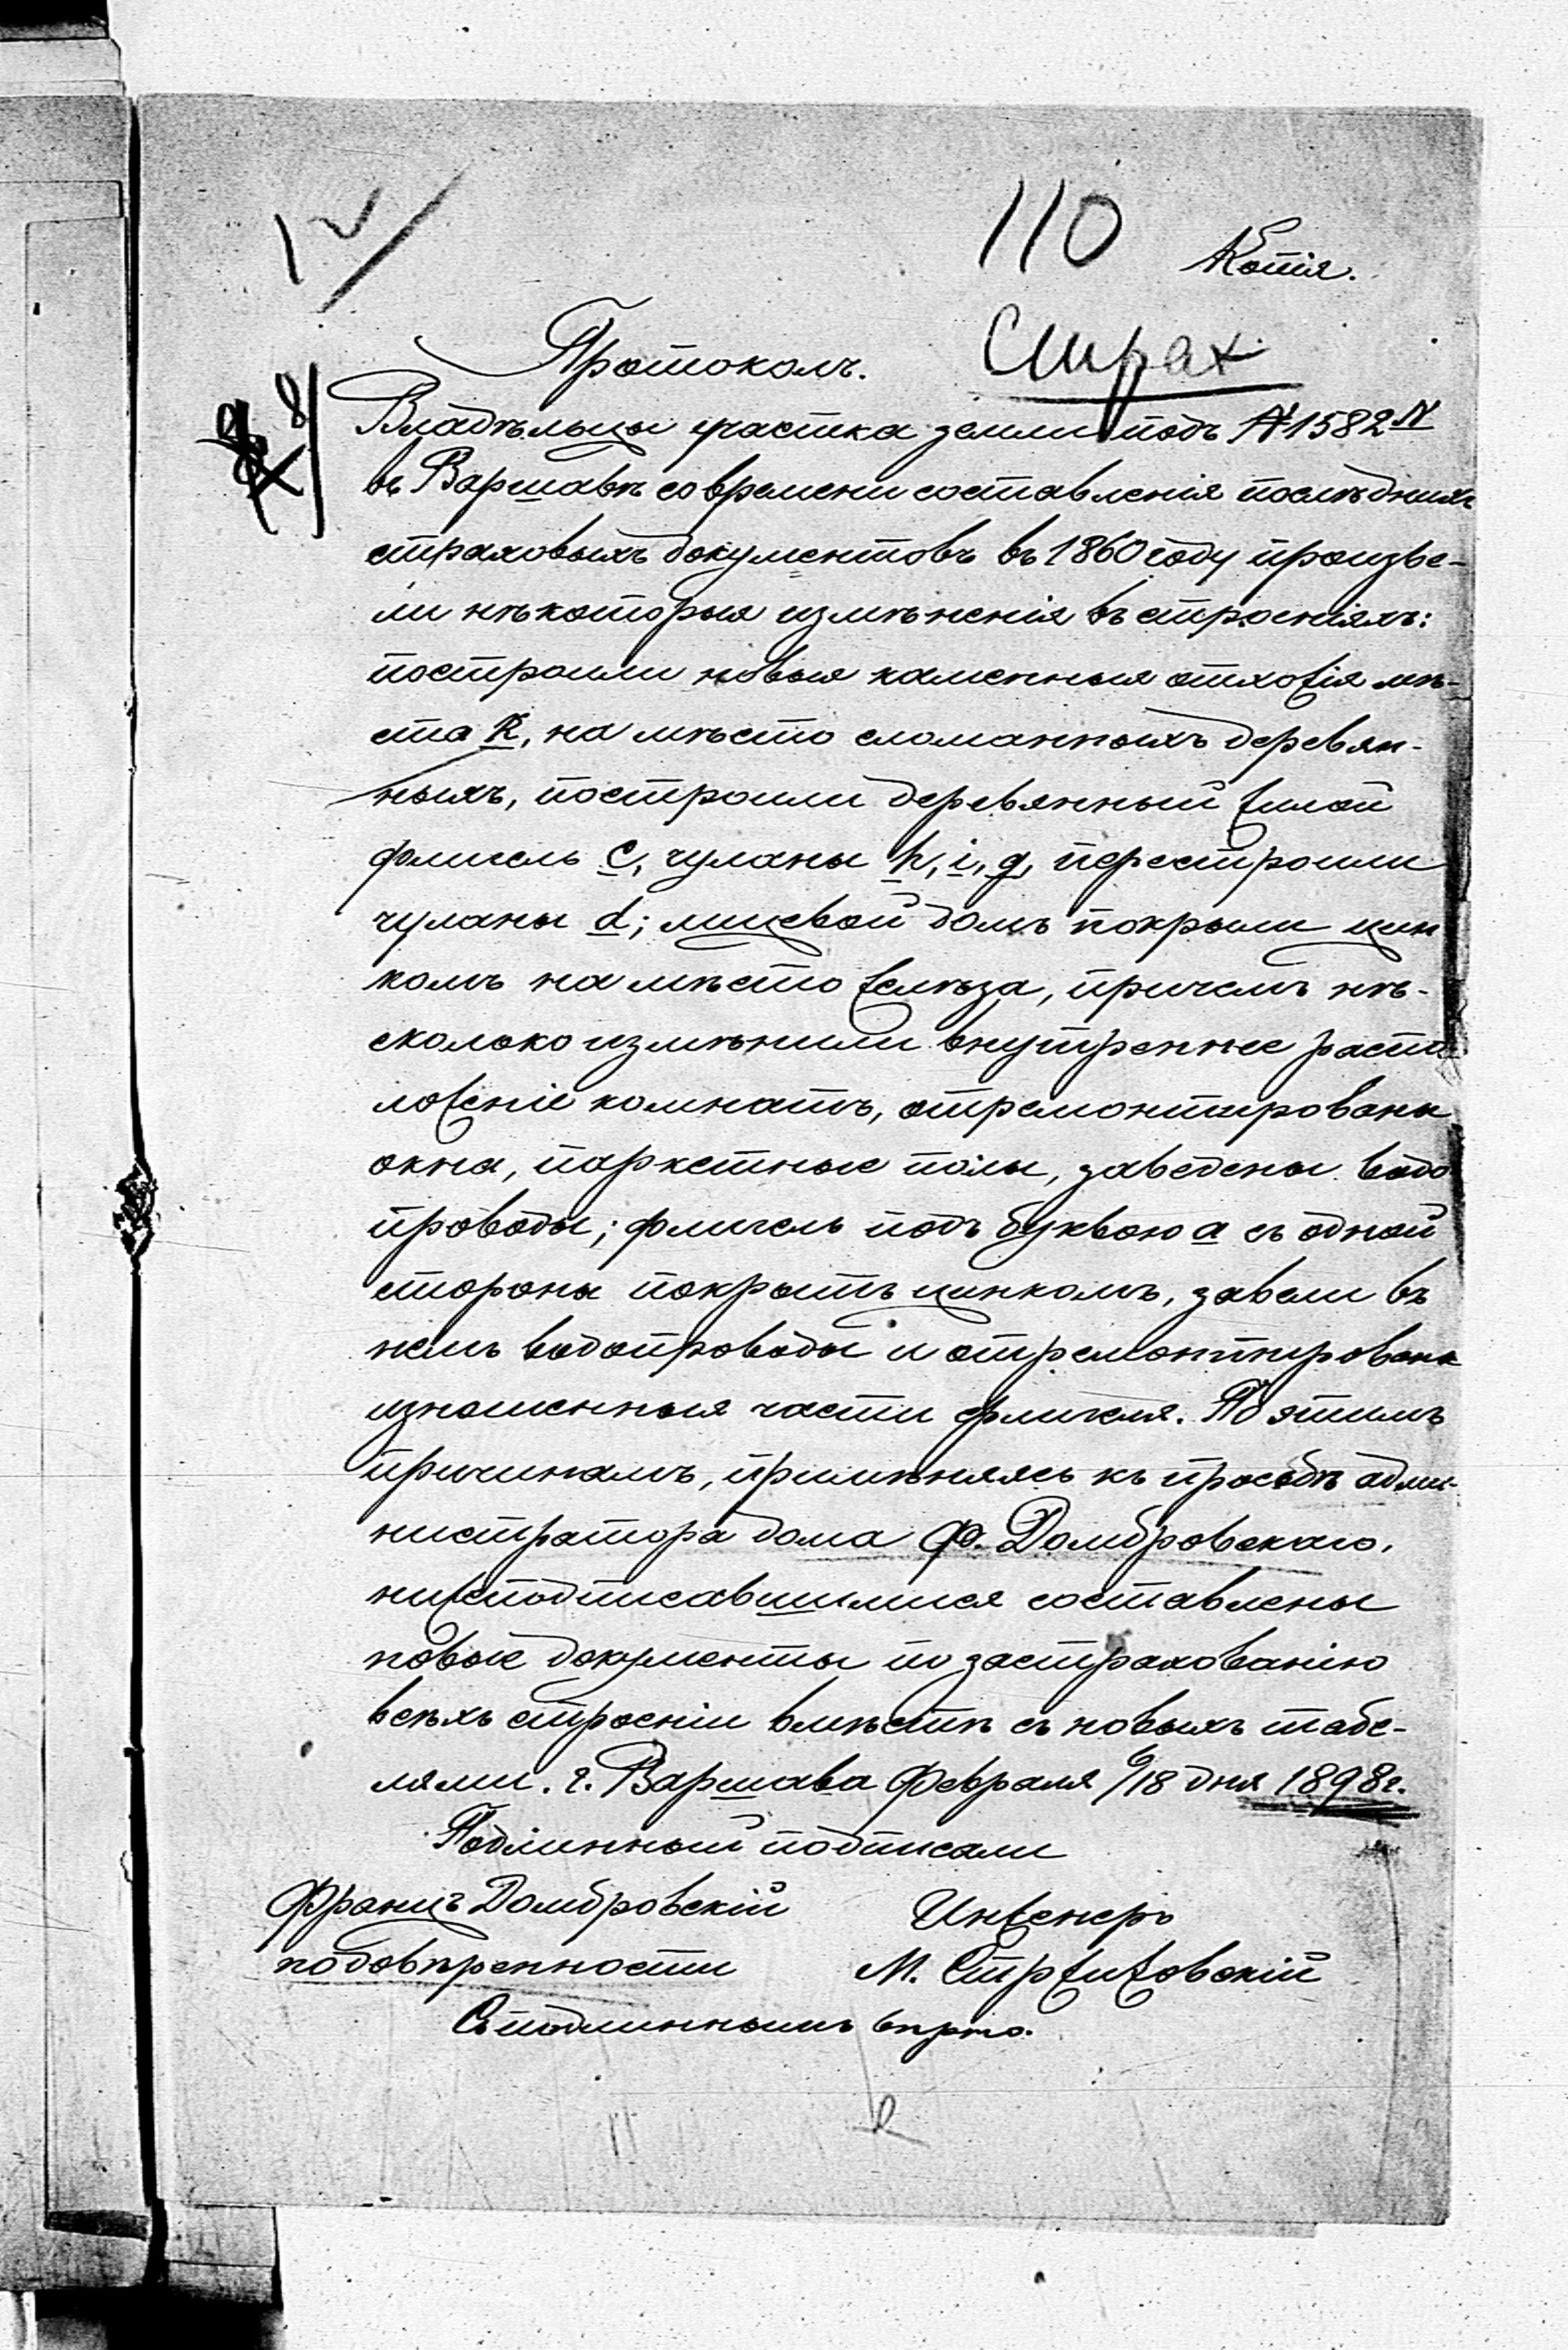 110
Копія.
Страх
Протоколъ.
Владѣльцы участка земли подъ № 1582 N
въ Варшавѣ со времени составленія послѣднихъ
страховыхъ документовъ въ 1860 году произве-
ли нѣкоторыя измѣненія въ строеніяхъ:
построили новыя каменныя отхожія мѣ-
ста k, на мѣсто сломанныхъ деревян-
ныхъ, построили деревянный жилой
флигель c, чуланы h, i, g, перестроили
чуланы d; лицевой домъ покрыли цин
комъ на мѣсто желѣза, причемъ нѣ-
сколько измѣнили внутреннее распо
ложеніе комнатъ, отремонтированы
окна, паркетные полы, заведены водо
проводы; флигель подъ буквою a съ одной
стороны покрытъ цинкомъ, завели въ
немъ водопроводы и отремонтированы
изношенныя части флигеля. По этимъ
причинамъ, примѣняясь къ просьбѣ адми-
нистратора дома Ф. Домбровскаго,
нижеподписавшимися составлены
новые документы по застрахованію
всѣхъ строеніи вмѣстѣ съ новыхъ табе-
лями. г. Варшава Февраля 6/18 дня 1898 г.
Подлинный подписали
Францъ Домбровскій
Инженеръ
по довѣренности
М. Стржижовскій
Съ подлиннымъ вѣрно.